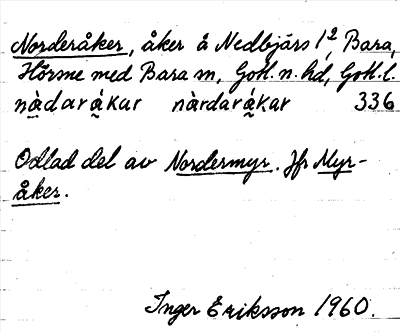 Norderåker, åker å Nedbjärs 1², Bara,
Hörsne med Bara sn, Gotl. n. hd, Gotl. l.
nà̰dará̰kar nàrdará̰kar 336
Odlad del av Nordermyr. Jfr Myr-
åker.
Inger Eriksson 1960.